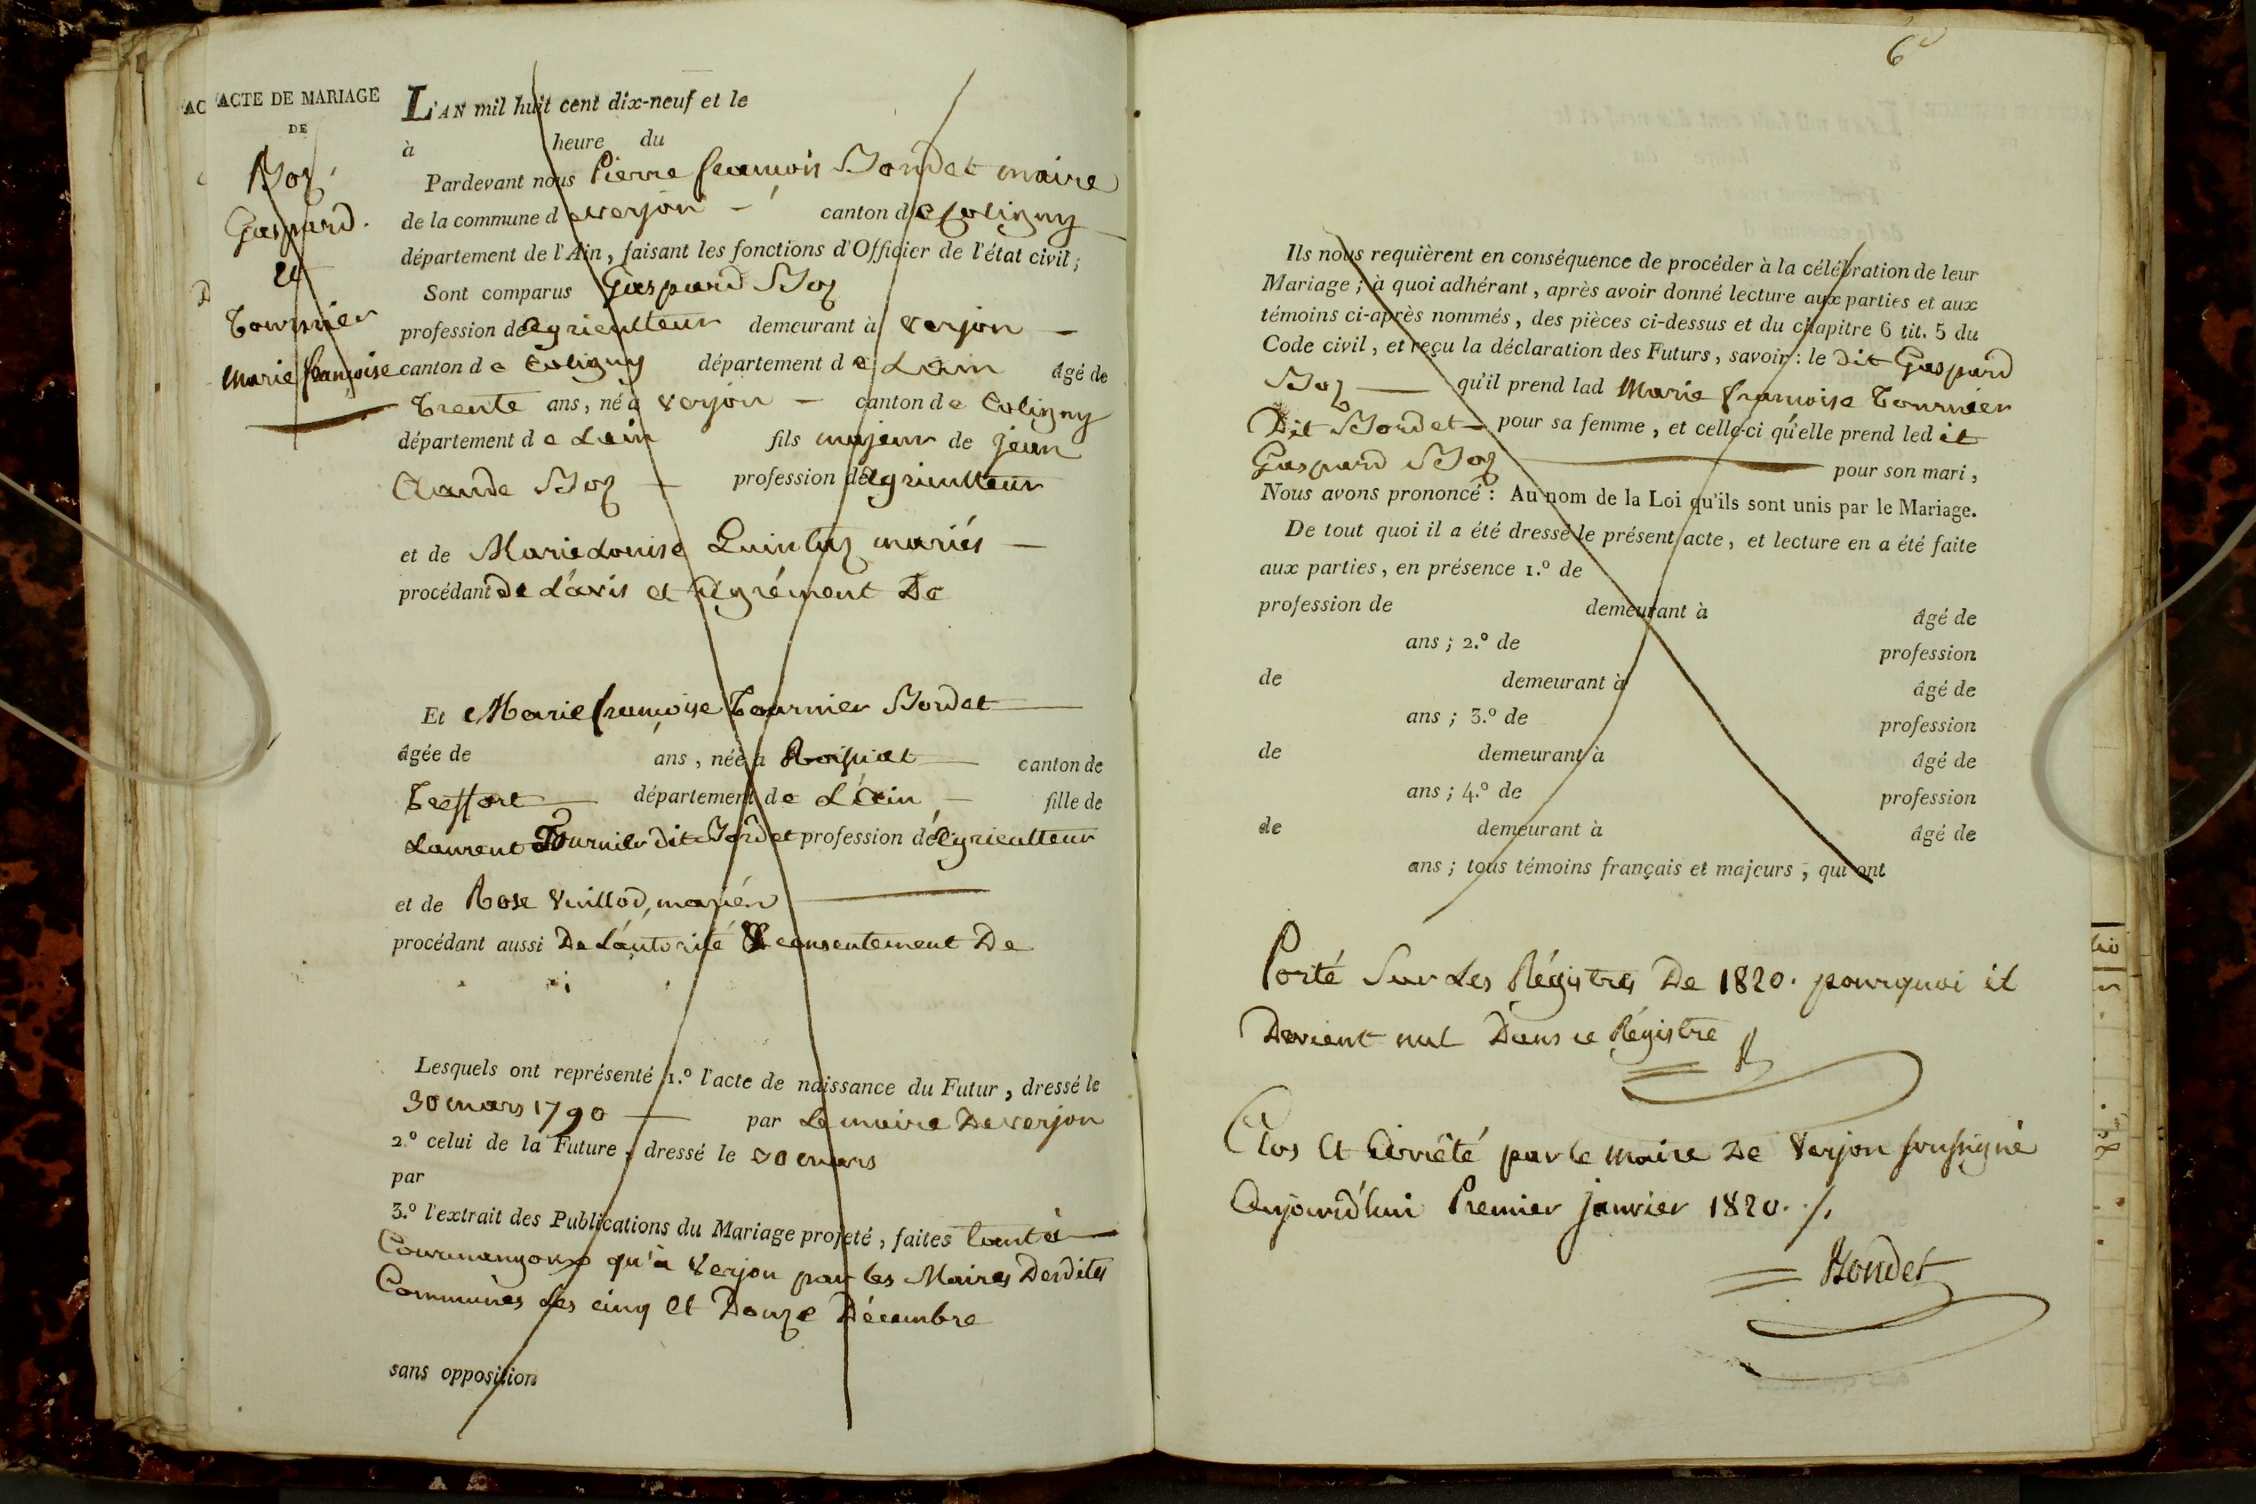 ACTE DE MARIAGE
DE
Boz
Gaspard.
et
Tournier
Marie françoise
L'AN mil huit cent dix-neuf et le
à heure du
Pardevant nous Pierre françois Bondet maire
de la commune de verjon - canton de Coligny
département de l'Ain, faisant les fonctions d'Officier de l'état civil;
Sont comparus Gaspard Boz
profession de agriculteur demeurant à verjon -
canton de Coligny département de L'ain âgé de
trente ans, né à verjon - canton de Coligny
département de Lain fils majeur de jean
Claude Boz - profession de agriculteur
et de Marie Louise Quintuz mariés -
procédant de L'avis et agrément De
Et Marie françoise Tournier Bordet
âgée de ans, née à Roissiat canton de
Treffort département de L'ain - fille de
Laurent Tournier dit Bordet profession de agriculteur
et de Rose Vuillod, mariés
procédant aussi De L'autorité & consentement De
Lesquels ont représenté 1.º l'acte de naissance du Futur, dressé le
30 mars 1790 par Le maire De verjon
2.º celui de la Future, dressé le 30 mars
par
3.º l'extrait des Publications du Mariage projeté, faites tant à
Courmangoux qu'à Verjon par les Maires Desdites
Communes Les cinq et Douze Décembre
sans opposition
6
Ils nous requièrent en conséquence de procéder à la célébration de leur
Mariage; à quoi adhérant, après avoir donné lecture aux parties et aux
témoins ci-après nommés, des pièces ci-dessus et du chapitre 6 tit. 5 du
Code civil, et reçu la déclaration des Futurs, savoir: le dit Gaspard
Boz qu'il prend lad Marie françoise Tournier
Dit Bordet - pour sa femme, et celle-ci qu'elle prend ledit
Gaspard Boz pour son mari,
Nous avons prononcé: Au nom de la Loi qu'ils sont unis par le Mariage.
De tout quoi il a été dressé le présent acte, et lecture en a été faite
aux parties, en présence 1.º de
profession de demeurant à âgé de
ans; 2.º de profession
de demeurant à âgé de
ans; 3.º de profession
de demeurant à âgé de
ans; 4.º de profession
de demeurant à âgé de
ans; tous témoins français et majeurs, qui ont
Porté Sur Les Régistres De 1820. pourquoi il
Devient nul Dans ce Régistre
Clos et Arrêté par le maire De Verjon soussigné
Aujourd'hui Premier janvier 1820. /.
Bondet